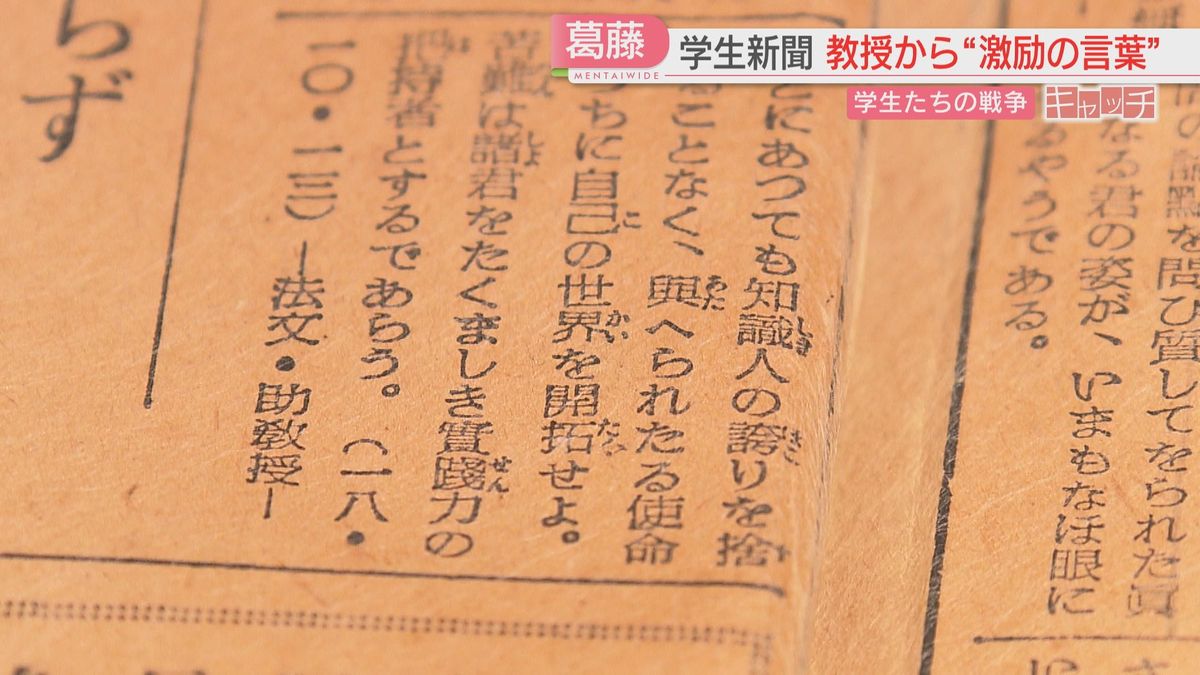 葛藤
MENTAIWIDE
学生新聞 教授から“激励の言葉”
学生たちの戦争 キャッチ
なる君の姿が、いまもなほ眼に
るやうである。
とにあつても知識人の誇りを捨
ることなく、與へられたる使命
ちに自己の世界を開拓せよ。
苦難は諸君をたくましき實踐力の
把持者とするであらう。(一八・
一〇・一三)―法文・助教授―
らず